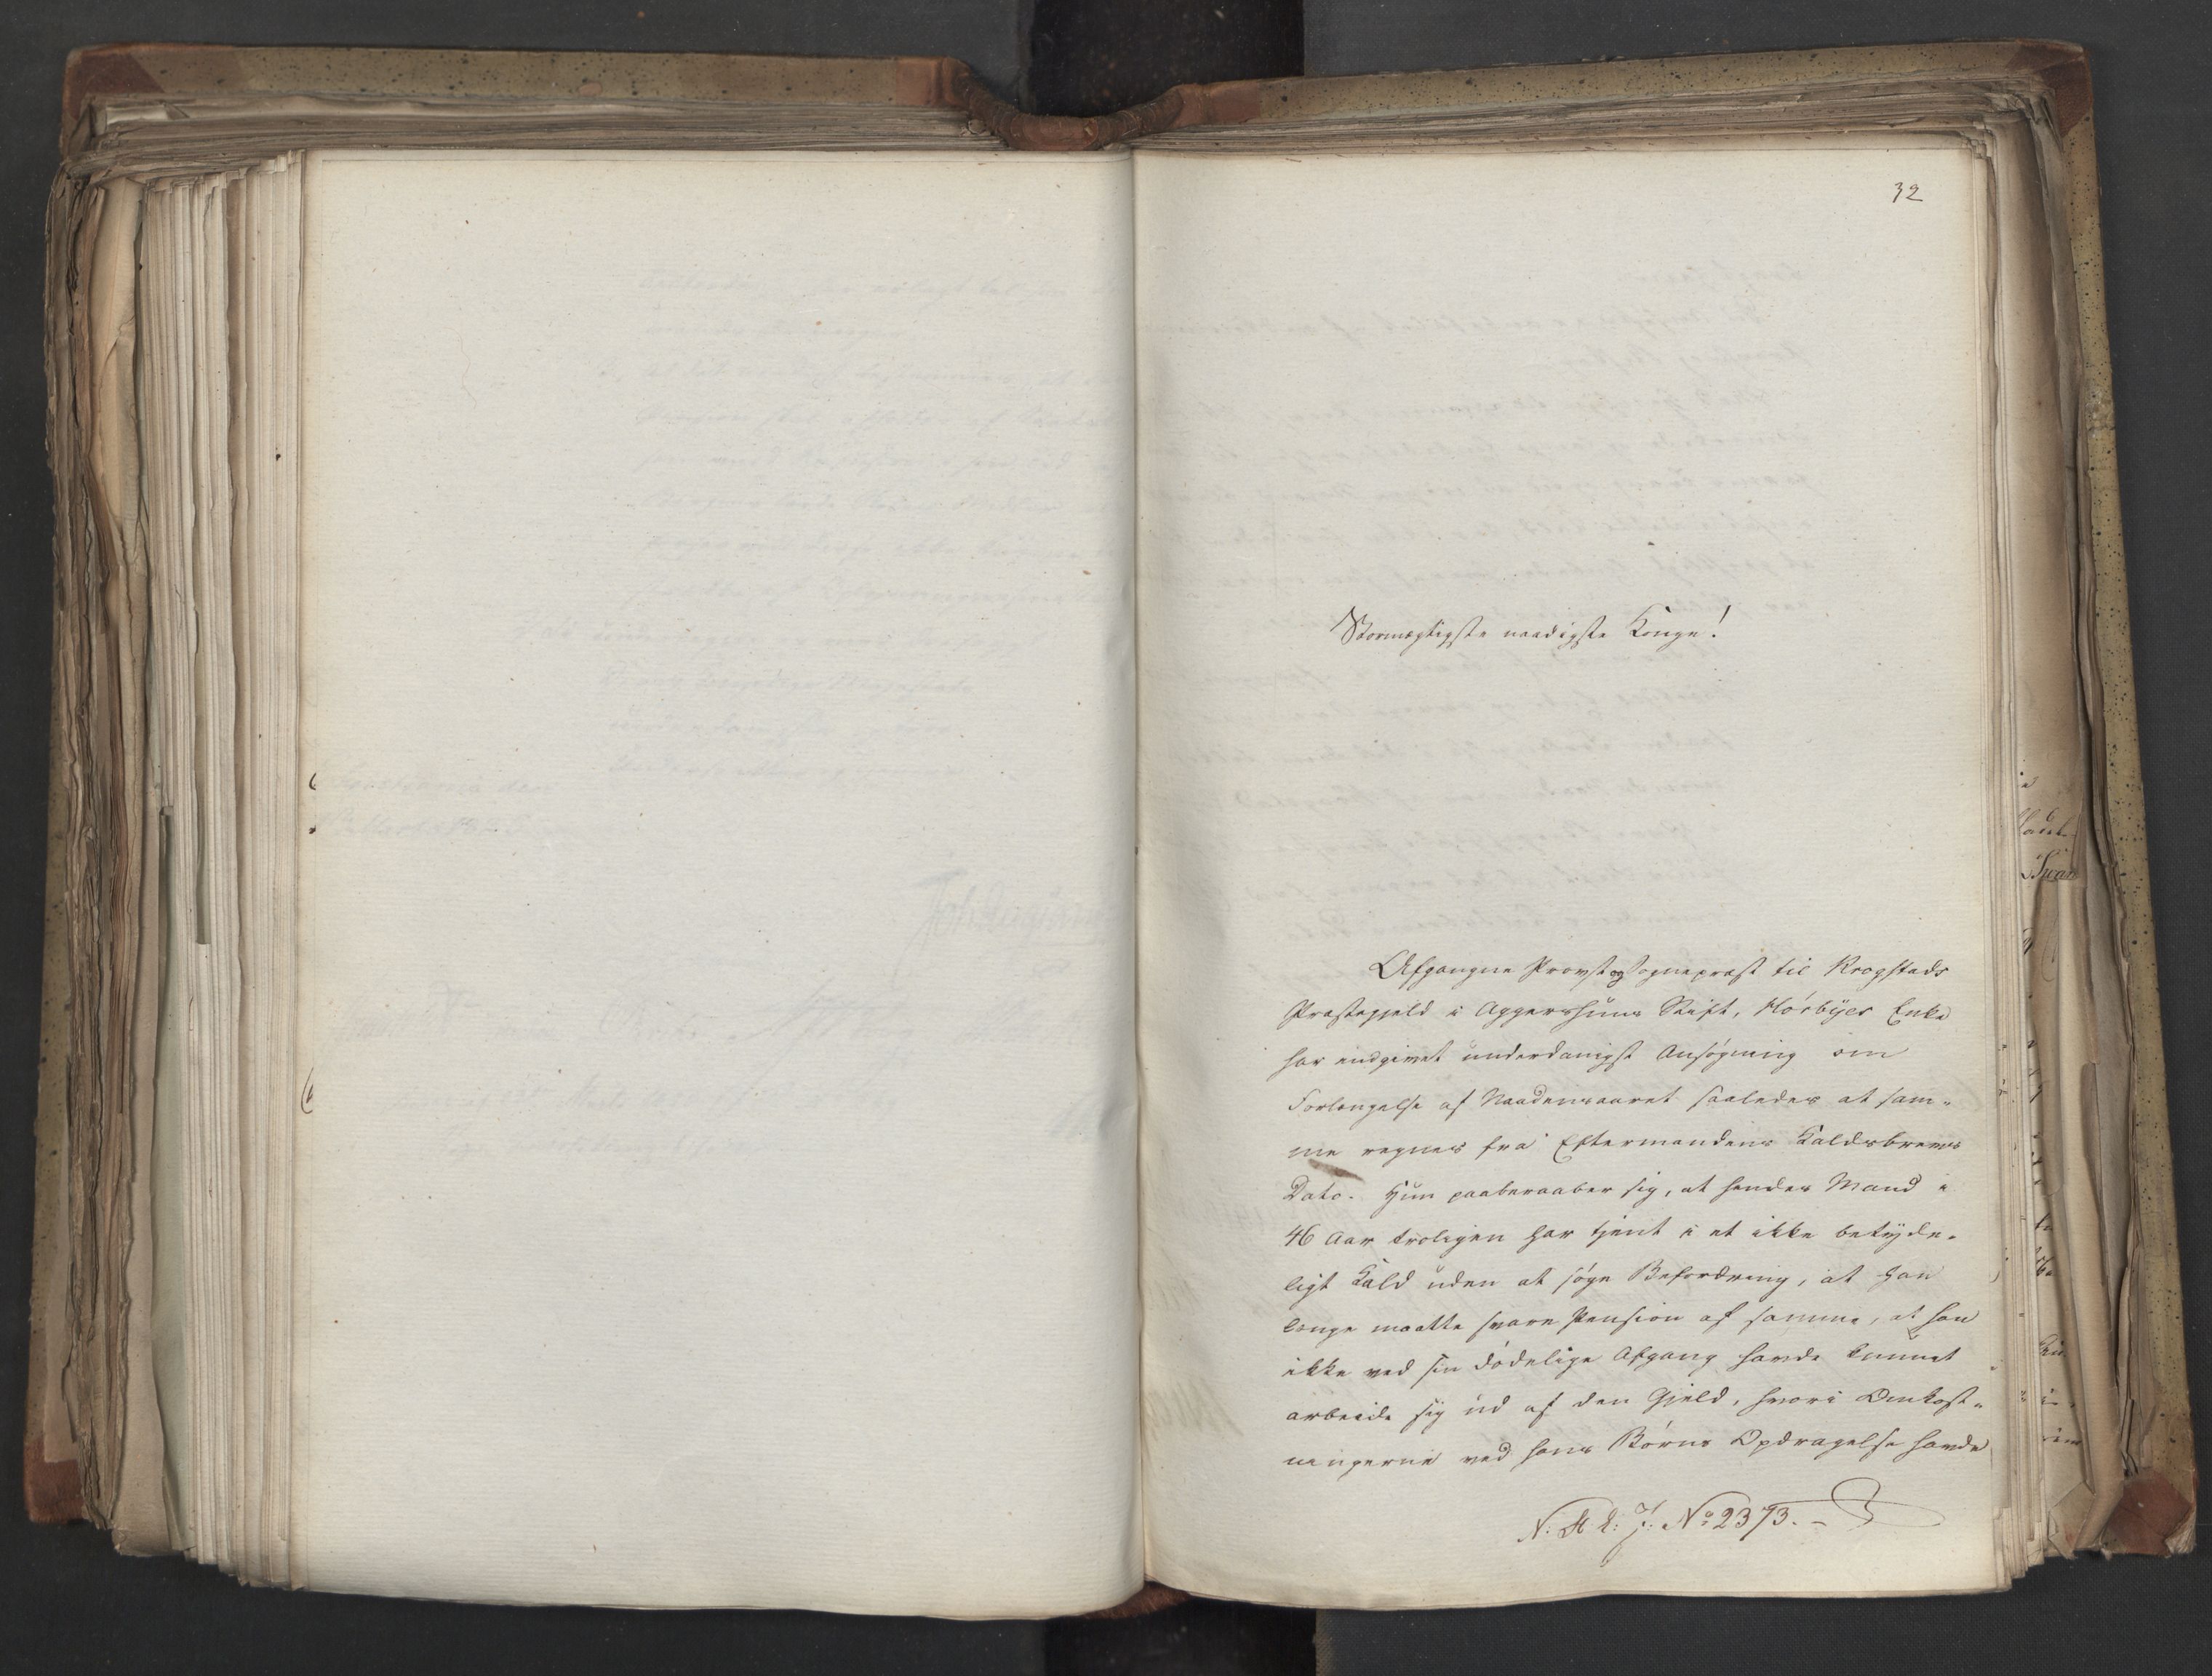 32
Stormægtigste naadigste Konge!
Afgangne Provst og Sognepræst til Krogstads
Præstegjeld i Aggershuus Stift, Hørbÿes Enke
har andgivet underdanigst Ansøgning om
Forlængelse af Naadensaaret saaledes at sam-
me regnes fra Eftermandens Kaldsbrevs
Dato. Hun paaberaaber sig, at hendes Mand i
46 Aar troligen har tjent i et ikke betÿde-
ligt Kald uden at søge Befordring, at han
længe maatte svare Pension af samme, at han
ikke ved sin dødelige Afgang havde kunnet
arbeide sig ud af den Gjeld, hvori Omkost-
ningerne ved hans Børns Opdragelse havde
N: St. R: J: No 2373. -